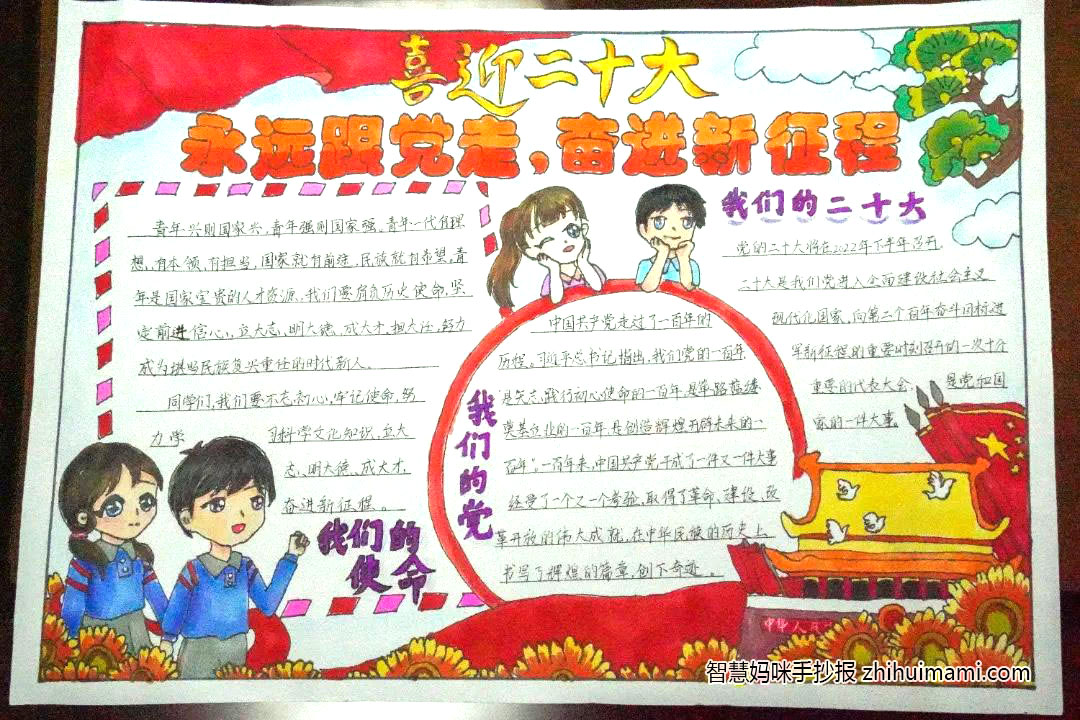 喜迎二十大
永远跟党走，奋进新征程
青年兴则国家兴，青年强则国家强，青年一代有理
想，有本领，有担当，国家就有前途，民族就有希望，青
年是国家宝贵的人才资源，我们要肩负历史使命，坚
定前进信心，立大志，明大德，成大才，担大任，努力
成为堪当民族复兴重任的时代新人。
同学们，我们要不忘初心，牢记使命，努
力学 习科学文化知识，立大
志，明大德，成大才，
奋进新征程。
我们的
使命
我们的党
中国共产党走过了一百年的
历程。习近平总书记指出，我们党的一百年
是矢志践行初心使命的一百年，是筚路蓝缕
奠基立业的一百年，是创造辉煌开辟未来的一
百年”。一百年来，中国共产党干成了一件又一件大事
经受了一个又一个考验，取得了革命、建设、改
革开放的伟大成就，在中华民族的历史上
书写了辉煌的篇章，创下奇迹。
我们的二十大
党的二十大将在2022年下半年召开，
二十大是我们党进入全面建设社会主义
现代化国家，向第二个百年奋斗目标进
军新征程的重要时刻召开的一次十分
重要的代表大会，是党和国
家的一件大事。
中华人民
智慧妈咪手抄报 zhihuimami.com